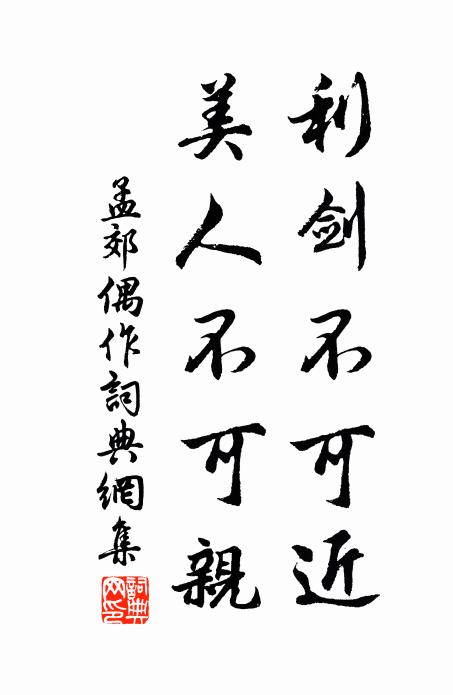 利劍不可近
美人不可親
孟郊偶作詞典網集
詞典网印